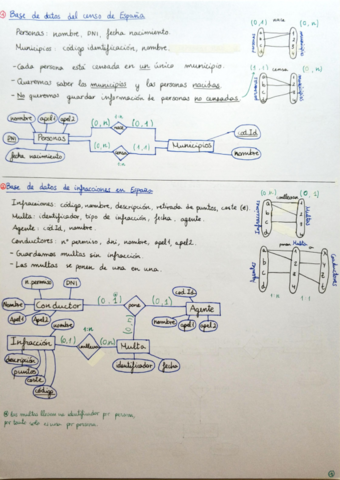 ① Base de datos del censo de España
(0,1) nace (0,n)
Personas: nombre, DNI, fecha nacimiento.
Municipios: código identificación, nombre.
- Cada persona está censada en un único municipio.
(1,1) censa (0,n)
- Queremos saber los municipios y las personas nacidas.
- No queremos guardar información de personas no censadas.
nombre apel1 apel2
1:n
(0,n) nace (0,1)
cod.Id
DNI Personas Municipios
(0,n) censa (1,1)
fecha nacimiento
1:n
nombre
② Base de datos de infracciones en España
(0,n) (0,1)
Infracciones: código, nombre, descripción, retirada de puntos, coste (€).
Multa: identificador, tipo de infracción, fecha, agente.
Infracciones Multas
Agente: codId, nombre.
Conductores: nº permiso, dni, nombre, apel1, apel2.
poner Multa
- Guardamos multas sin infracción.
Agentes Conductores
- Las multas se ponen de una en una.
1:n 1:1
n.permiso DNI
cod.Id
Nombre Conductor pone (0,1) Agente
Apel1 Apel2
nombre apel1 apel2
nombre
1:n
Infracción (0,1) (0,n) Multa
descripción
puntos
identificador fecha
coste
código